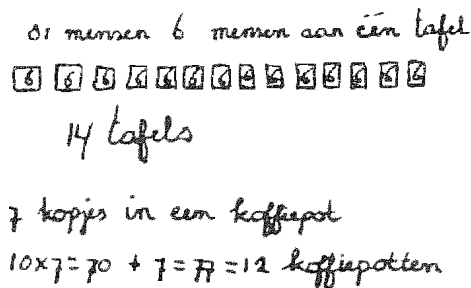 81 mensen 6 mensen aan één tafel
6 6 6 6 6 6 6 6 6 6 6 6 6 6
14 tafels
7 kopjes in een koffiepot
10x7=70 + 7=77=12 koffiepotten